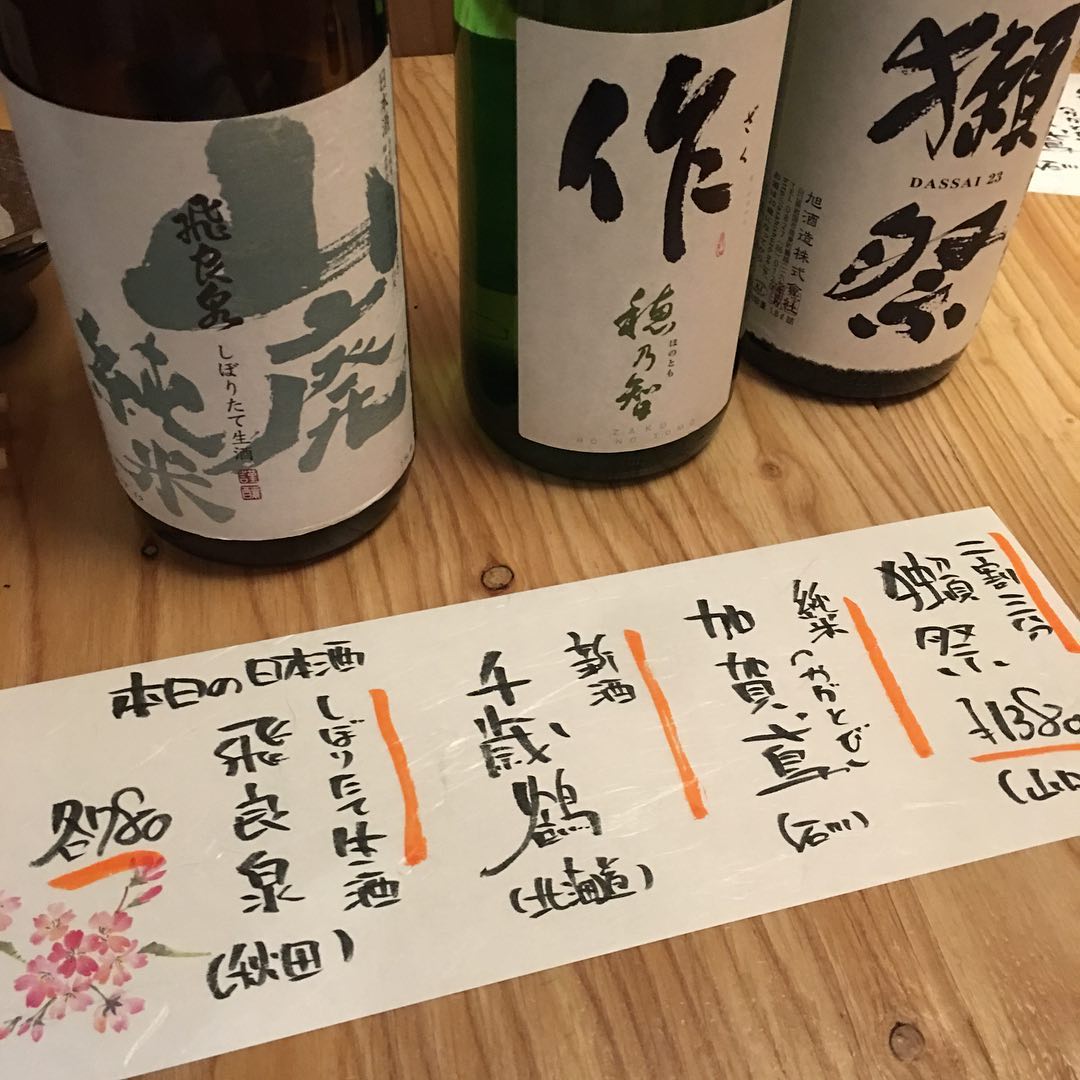 山廃
純米
飛良泉
しぼりたて生酒
謹醸
日本酒
作
ざく
穂乃智
ほのとも
ZAKU
HO NO TOMO
獺祭
DASSAI 23
旭酒造株式会社
獺祭
二割三分
加賀鳶
純米
(石川)
千歳鶴
(北海道)
飛良泉
しぼりたて生酒
(秋田)
本日の日本酒
各780